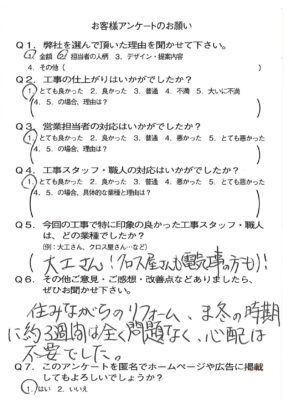 お客様アンケートのお願い
Q1. 弊社を選んで頂いた理由を聞かせて下さい。
1. 金額 2. 担当者の人柄 3. デザイン・提案内容
4. その他 ( )
Q2. 工事の仕上がりはいかがでしたか?
1. とても良かった 2. 良かった 3. 普通 4. 不満 5. 大いに不満
4. 5. の場合、理由は?
( )
Q3. 営業担当者の対応はいかがでしたか?
1. とても良かった 2. 良かった 3. 普通 4. 悪かった 5. とても悪かった
4. 5. の場合、理由は?
( )
Q4. 工事スタッフ・職人の対応はいかがでしたか?
1. とても良かった 2. 良かった 3. 普通 4. 悪かった 5. とても悪かった
4. 5. の場合、具体的な業種と理由は?
( )
Q5. 今回の工事で特に印象の良かった工事スタッフ・職人
は、どの業種でしたか?
(例:大工さん、クロス屋さん…など)
(大工さん!クロス屋さんも電気の方も)!
Q6. その他ご意見・ご感想・改善点などありましたら、
ぜひお聞かせ下さい。
住みながらのリフォーム、ま冬の時期
に約3週間は全く問題なく、心配は
不要でした。
Q7. このアンケートを匿名でホームページや広告に掲載
してもよろしいでしょうか?
1. はい 2. いいえ